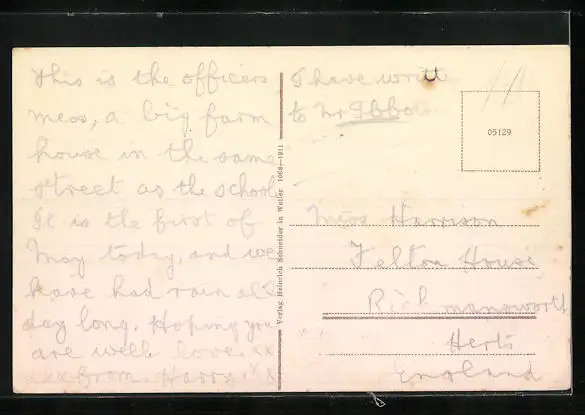 This is the officers
mess, a big farm
house in the same
street as the school
It is the first of
May today, and we
have had rain all
day long. Hoping you
are well love. xx
xxx from Harry. x x
I have writt
to Mr Ibbo
Verlag Heinrich Schneider in Weiler 1068—1911
05129
Miss Harrison
Felton House
Rickmansworth
Herts
England